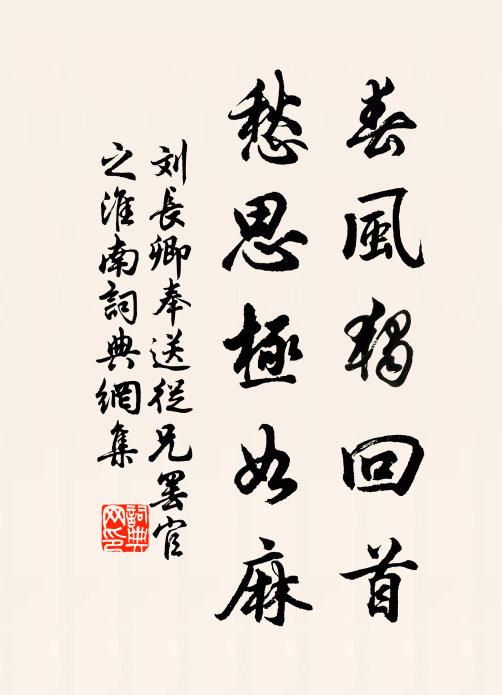 春風獨回首
愁思極如麻
刘長卿奉送從兄罷官
之淮南詞典網集
詞典
网印